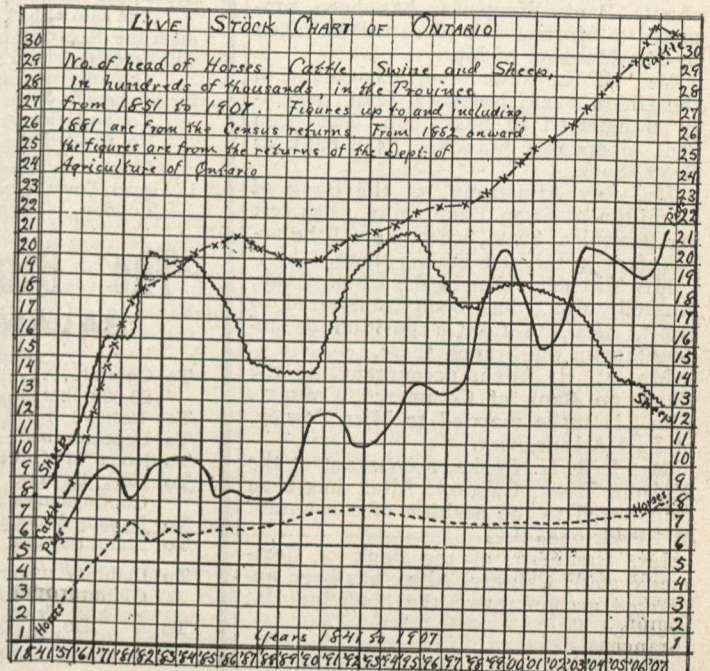 LIVE STOCK CHART OF ONTARIO
No. of head of Horses Cattle Swine and Sheep,
In hundreds of thousands, in the Province
from 1851 to 1907. Figures up to and including
1881 are from the Census returns. From 1882 onward
the figures are from the returns of the Dept. of
Agriculture of Ontario
30
29
28
27
26
25
24
23
22
21
20
19
18
17
16
15
14
13
12
11
10
9
8
7
6
5
4
3
2
1
Cattle
30
29
28
27
26
25
24
23
22
21
20
19
18
17
16
15
14
13
12
11
10
9
8
7
6
5
4
3
2
1
Sheep
Cattle
Pigs
Horses
Sheep
Horses
Years 1841 to 1907
1841 '51 '61 '71 '81 '82 '83 '84 '85 '86 '87 '88 '89 '90 '91 '92 '93 '94 '95 '96 '97 '98 '99 '00 '01 '02 '03 '04 '05 '06 '07